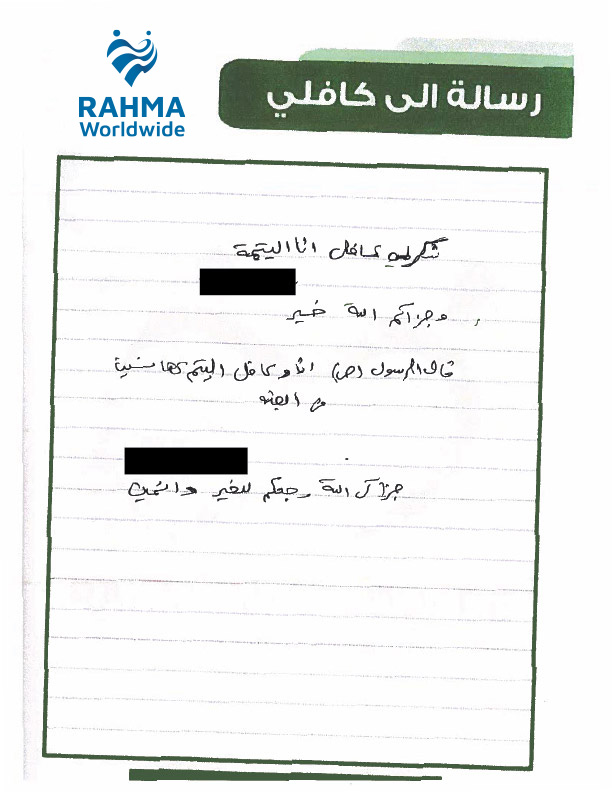 RAHMA
Worldwide
رسالة الى كافلي
انا اليتيمة
وجزاكم الله خير
قال الرسول (ص) انا و كافل اليتيم كها
من الجنه
جزاك الله وجعكم للخير